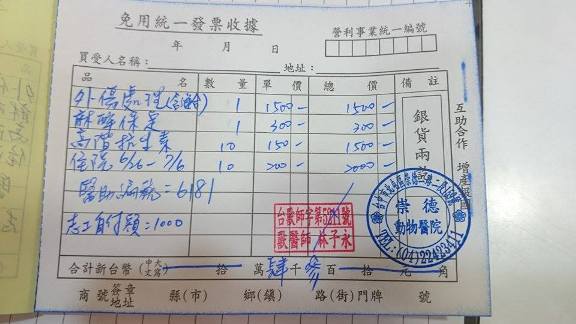 免用統一發票收據
年 月 日
營利事業統一編號
買受人名稱：
地址：
品 名 數 量 單 價 總 價 備 註
外傷處理 1 1500- 1500-
1 300- 300-
高階抗生素 10 150- 1500-
住院6/26-7/6 10 200- 2000-
醫助病號=6181
志工自付額=1000
銀貨兩
互助合作 增產報國
獸醫師 林子永
崇德
動物醫院
TEL:(04)22423411
合計新台幣(中文大寫) 拾 萬 肆 千 參 百 拾 元 角
商號 簽章 地址 縣(市) 鄉(鎮) 路(街)門牌 號